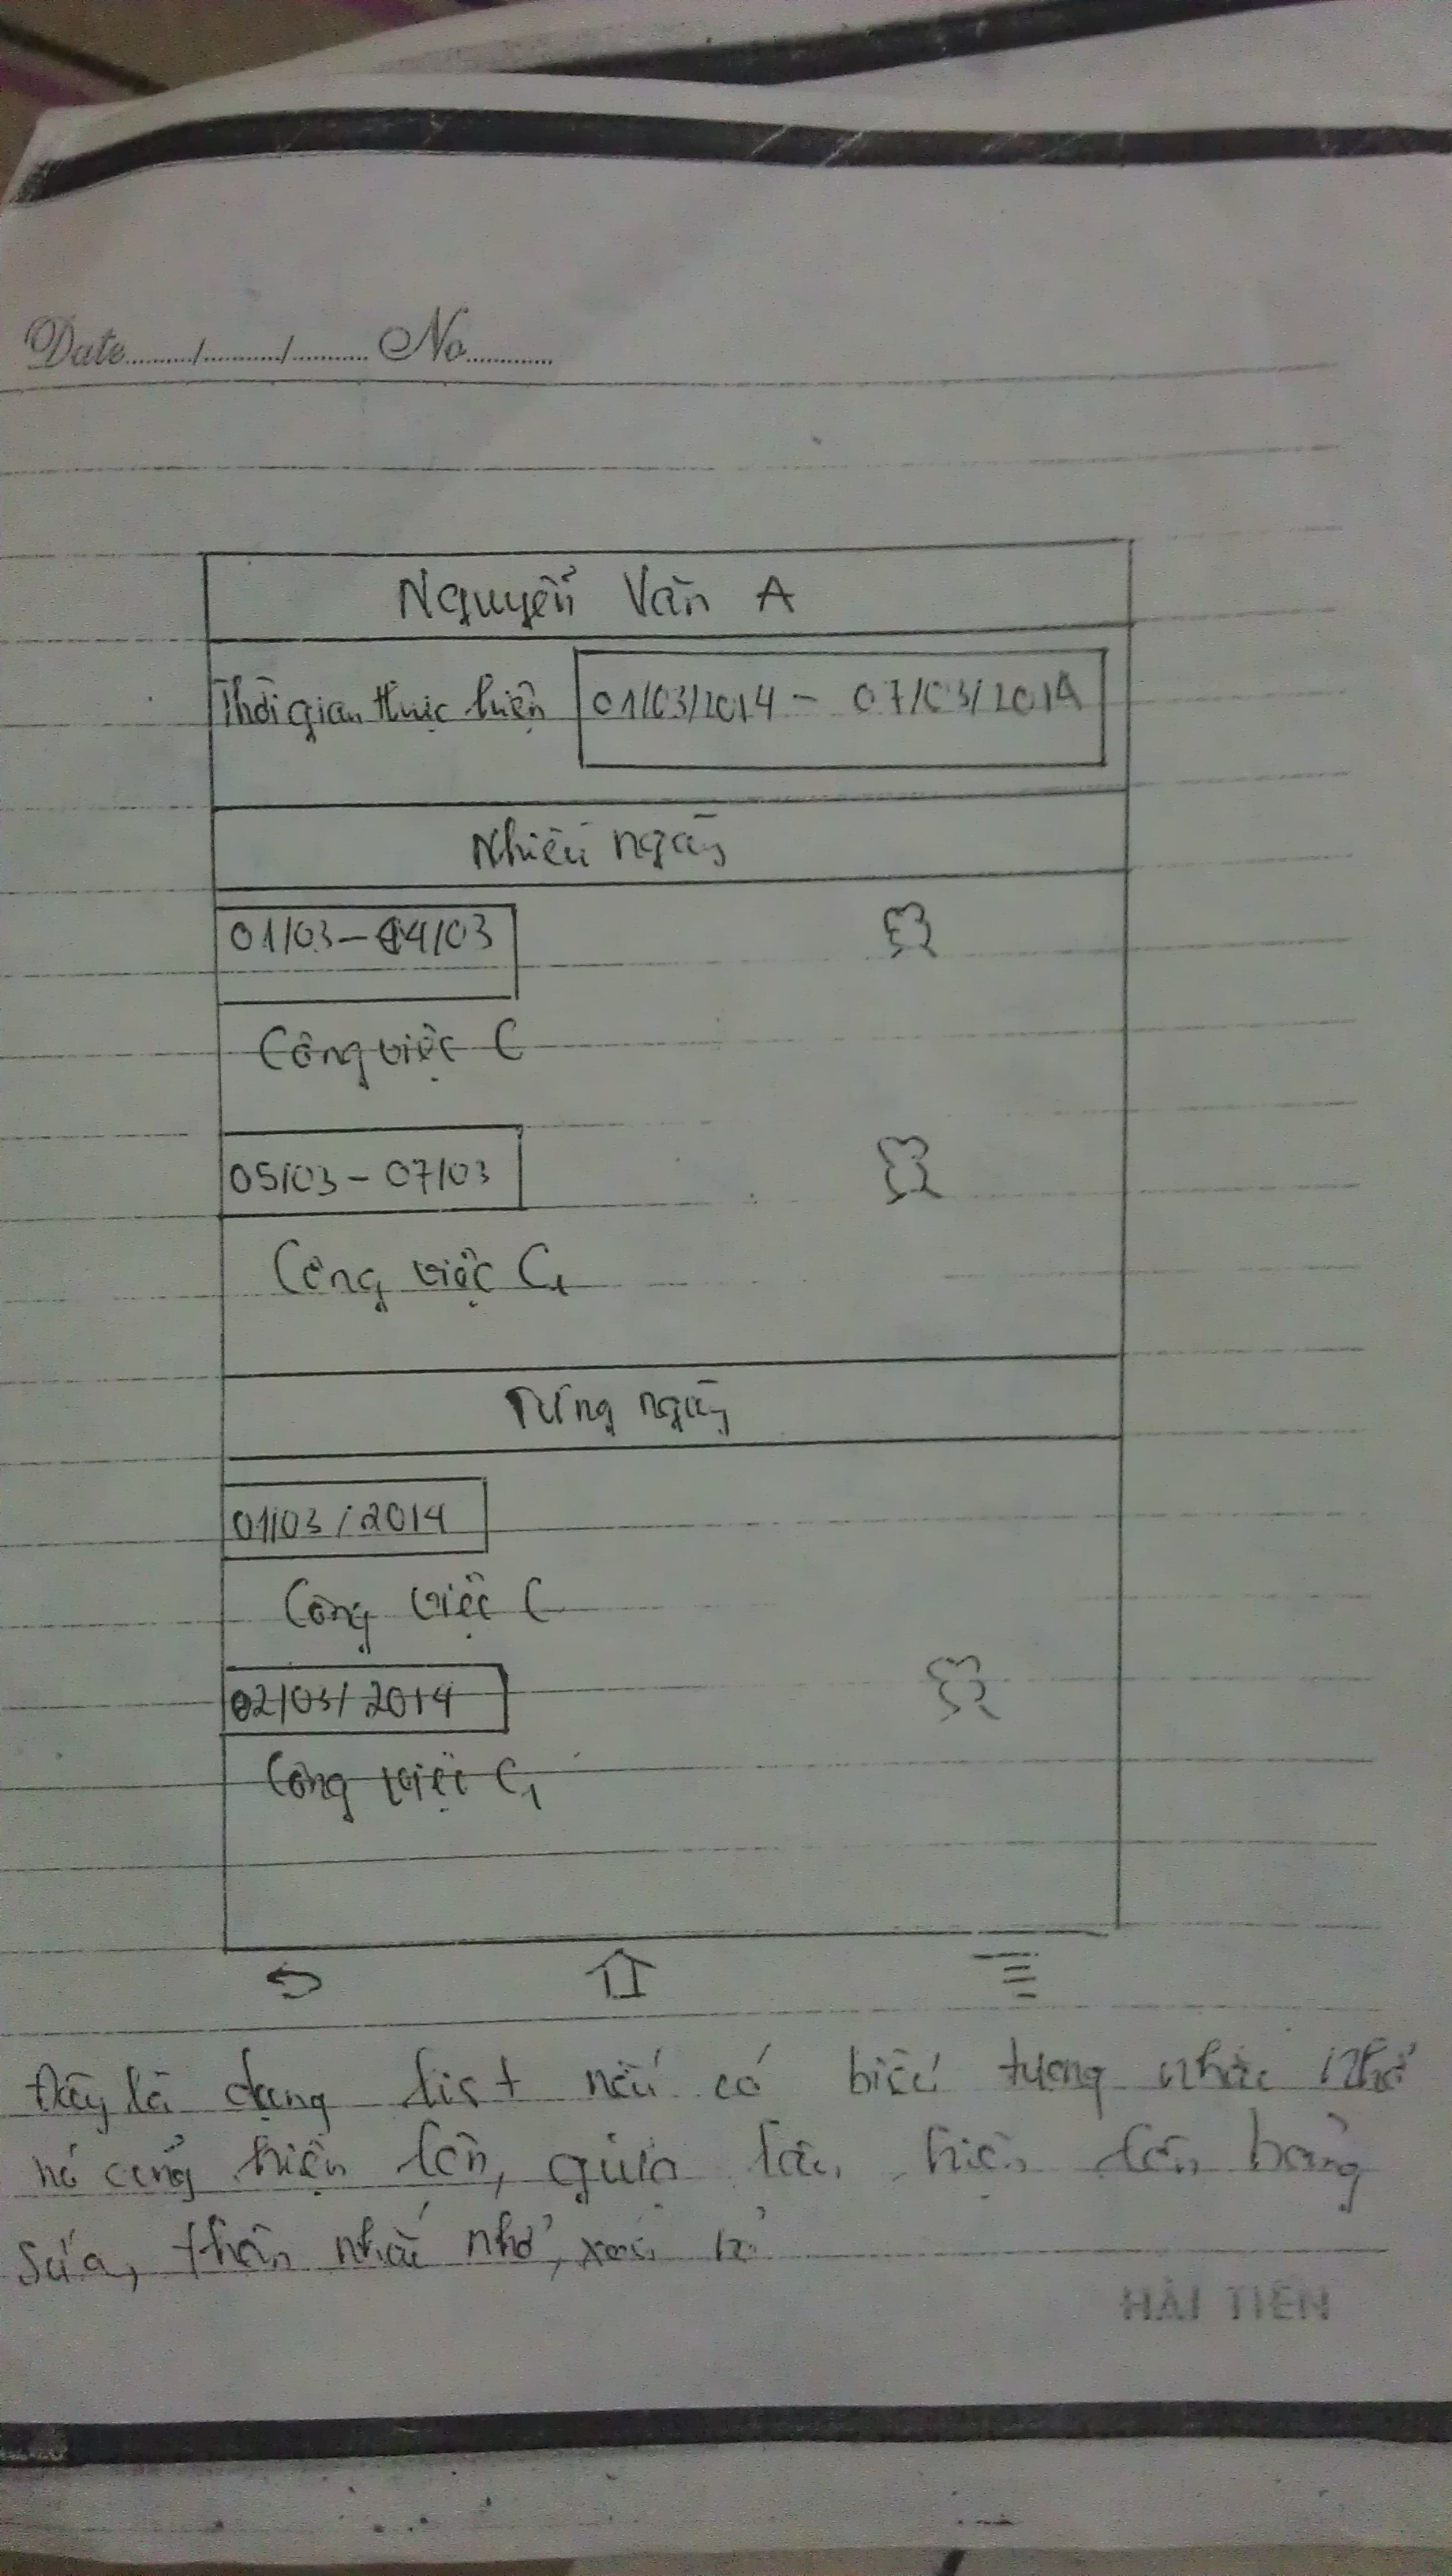 Date......../......../........ No.........
Nguyễn Văn A
Thời gian thực hiện 01/03/2014 - 07/03/2014
Nhiều ngày
01/03 - 04/03
Công việc C
05/03 - 07/03
Công việc C1
Từng ngày
01/03/2014
Công việc C
02/03/2014
Công việc C1
Đây là dạng list nếu có biểu tượng nhắc nhở
nó cũng hiện lên, giữ lâu hiện lên bảng
Sửa, thêm nhắc nhở, xoá
HẢI TIẾN